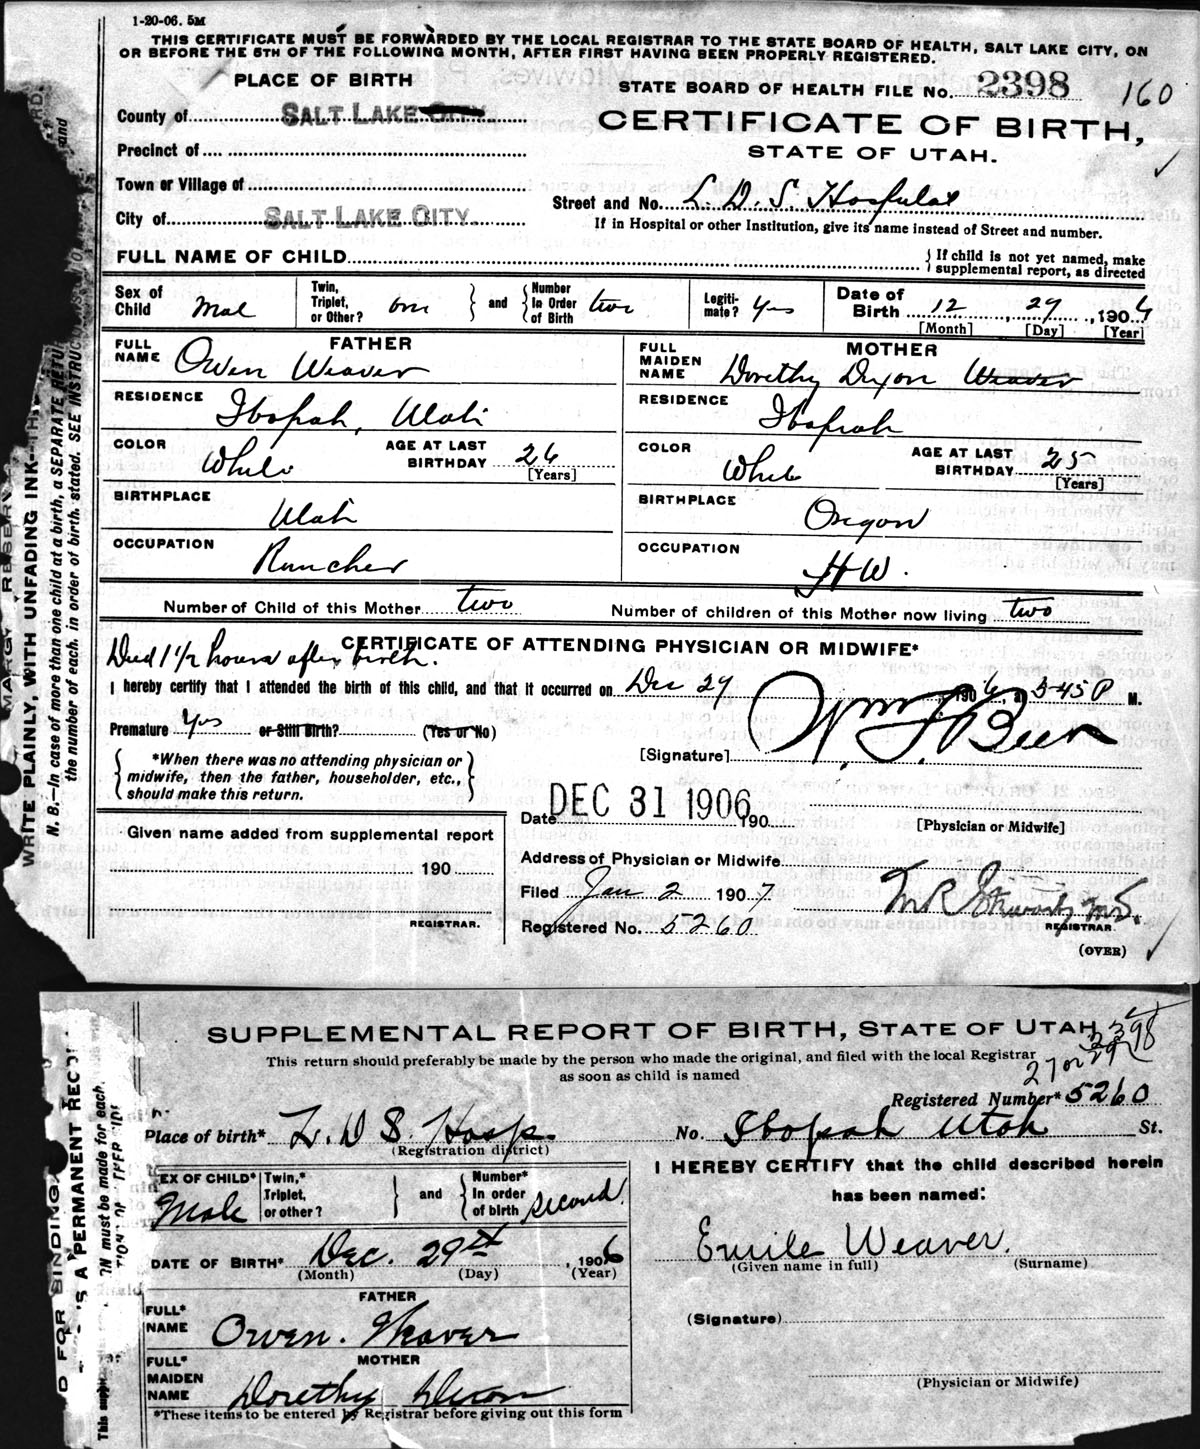 1-20-06. 5M
THIS CERTIFICATE MUST BE FORWARDED BY THE LOCAL REGISTRAR TO THE STATE BOARD OF HEALTH, SALT LAKE CITY, ON
OR BEFORE THE 5TH OF THE FOLLOWING MONTH, AFTER FIRST HAVING BEEN PROPERLY REGISTERED.
PLACE OF BIRTH
STATE BOARD OF HEALTH FILE No. 2398 160
County of SALT LAKE CITY
CERTIFICATE OF BIRTH,
STATE OF UTAH.
Precinct of
Town or Village of
Street and No. L. D. S. Hospital
City of SALT LAKE CITY
If in Hospital or other Institution, give its name instead of Street and number.
FULL NAME OF CHILD
If child is not yet named, make
supplemental report, as directed
Sex of Child Mal
Twin, Triplet, or Other? one and Number In Order of Birth two
Legitimate? Yes
Date of Birth 12 29, 1906
[Month] [Day] [Year]
FATHER
FULL NAME Owen Weaver
MOTHER
FULL MAIDEN NAME Dorethy Dixon Weaver
RESIDENCE Ibapah, Utah
RESIDENCE Ibapah
COLOR White AGE AT LAST BIRTHDAY 26 [Years]
COLOR White AGE AT LAST BIRTHDAY 25 [Years]
BIRTHPLACE Utah
BIRTHPLACE Oregon
OCCUPATION Rancher
OCCUPATION HW.
Number of Child of this Mother two
Number of children of this Mother now living two
CERTIFICATE OF ATTENDING PHYSICIAN OR MIDWIFE*
Died 1 1/2 hours after birth.
I hereby certify that I attended the birth of this child, and that it occurred on Dec 29, 1906, a 5-45 P M.
Premature Yes or Still Birth? (Yes or No)
[Signature]
*When there was no attending physician or
midwife, then the father, householder, etc.,
should make this return.
Date DEC 31 1906 190
[Physician or Midwife]
Given name added from supplemental report
190
REGISTRAR.
Address of Physician or Midwife
Filed Jan 2 1907
REGISTRAR.
Registered No. 5260
(OVER)
WRITE PLAINLY, WITH UNFADING INK
N. B.—In case of more than one child at a birth, a SEPARATE RETU
the number of each, in order of birth, stated. SEE INSTRUC
SUPPLEMENTAL REPORT OF BIRTH, STATE OF UTAH
This return should preferably be made by the person who made the original, and filed with the local Registrar
as soon as child is named
27 or 29
2398
Registered Number* 5260
Place of birth* L. D S. Hosp.
(Registration district)
No. Ibapah Utah St.
SEX OF CHILD* Male
Twin,* Triplet, or other? and Number* In order of birth second
I HEREBY CERTIFY that the child described herein
has been named:
DATE OF BIRTH* Dec. 29th, 1906
(Month) (Day) (Year)
Emile Weaver.
(Given name in full) (Surname)
FATHER
FULL* NAME Owen. Weaver
(Signature)
MOTHER
FULL* MAIDEN NAME Dorethy Dixon
(Physician or Midwife)
*These items to be entered by Registrar before giving out this form
D FOR BINDING
'S A PERMANENT RECO